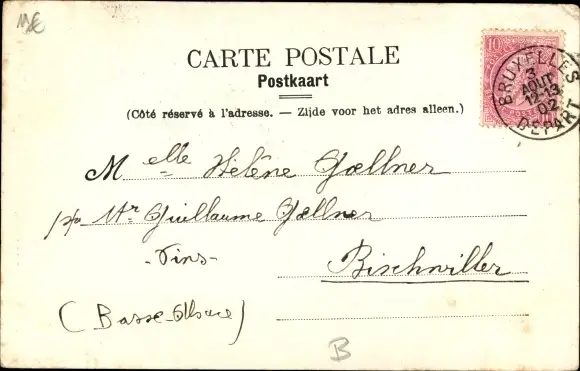 CARTE POSTALE
Postkaart
(Côté réservé à l'adresse. — Zijde voor het adres alleen.)
10
BRUXELLES
3
AOUT
12-13
02
DEPART
Melle Hélène Goellner
p/a Mr Guillaume Goellner
- Vins -
Bischwiller
(Basse-Alsace)
B